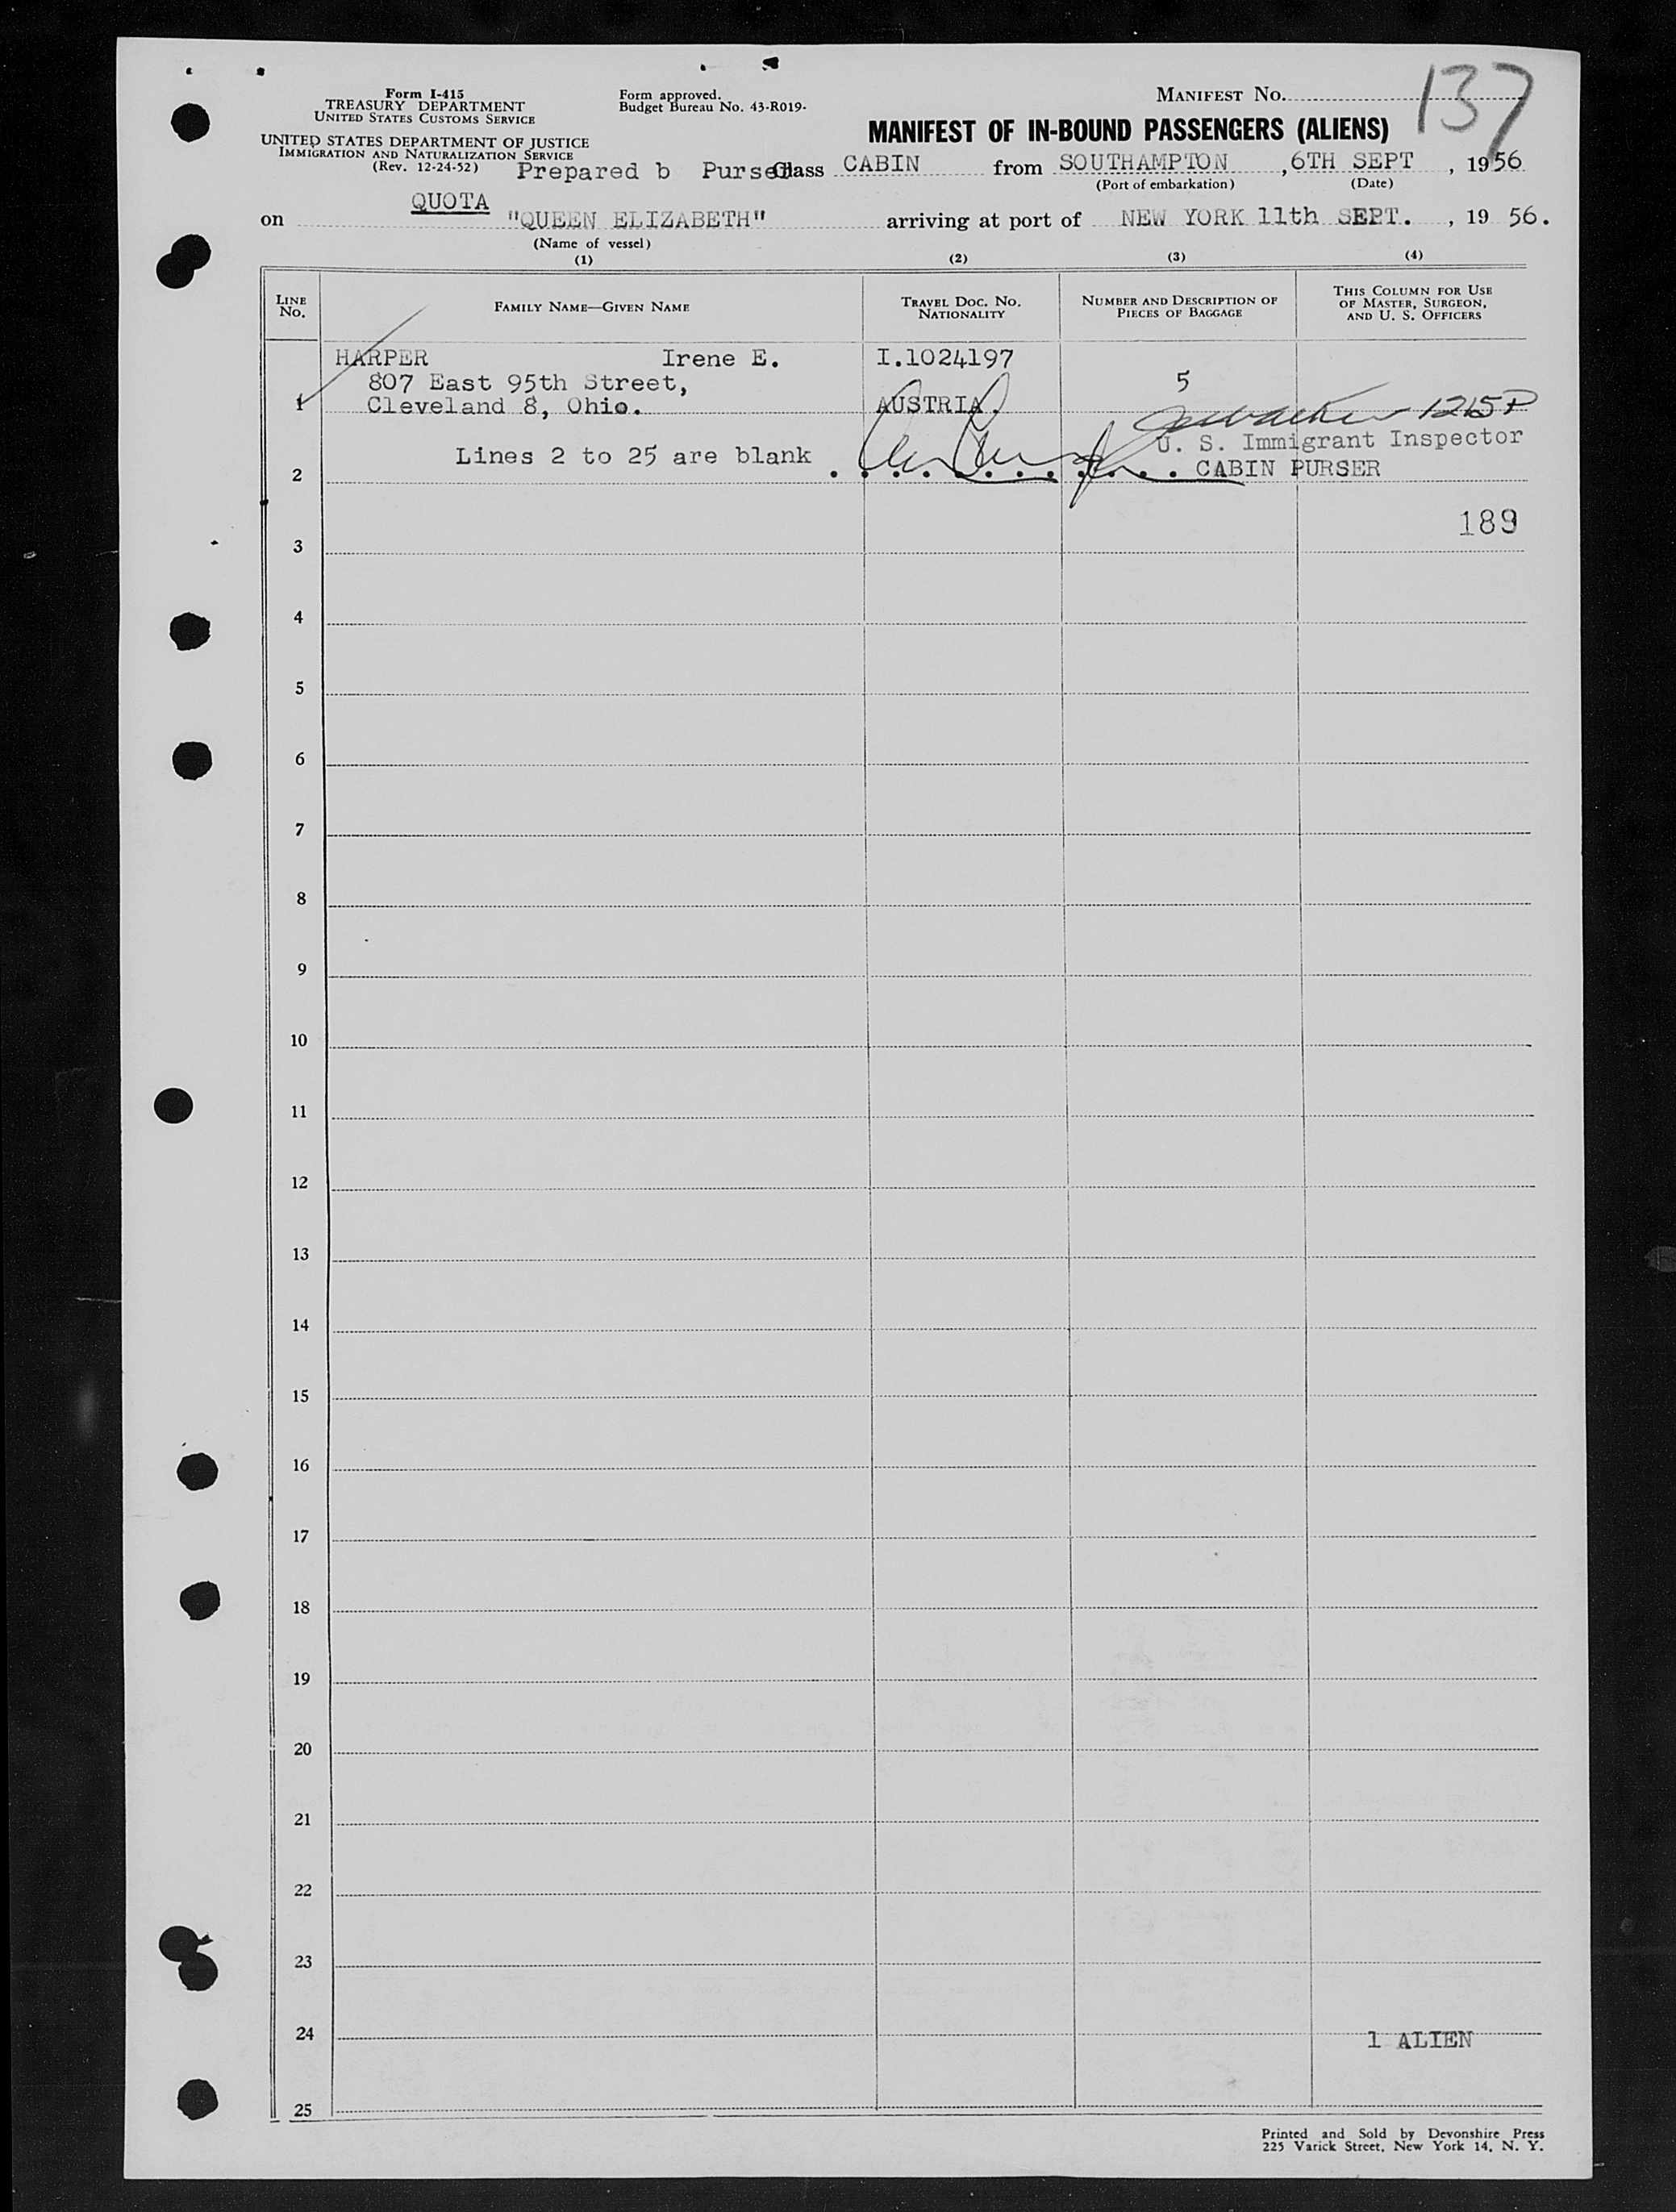 Form I-415
TREASURY DEPARTMENT
UNITED STATES CUSTOMS SERVICE
UNITED STATES DEPARTMENT OF JUSTICE
IMMIGRATION AND NATURALIZATION SERVICE
(Rev. 12-24-52)
Form approved.
Budget Bureau No. 43-R019-
MANIFEST No. 137
MANIFEST OF IN-BOUND PASSENGERS (ALIENS)
Prepared b Purser Class CABIN from SOUTHAMPTON , 6TH SEPT , 1956
(Port of embarkation) (Date)
QUOTA
on "QUEEN ELIZABETH" arriving at port of NEW YORK 11th SEPT. , 19 56.
(Name of vessel)
(1) (2) (3) (4)
LINE No. FAMILY NAME—GIVEN NAME TRAVEL DOC. No. NATIONALITY NUMBER AND DESCRIPTION OF PIECES OF BAGGAGE THIS COLUMN FOR USE OF MASTER, SURGEON, AND U. S. OFFICERS
HARPER Irene E. I.1024197
807 East 95th Street, 5
1 Cleveland 8, Ohio. AUSTRIA. 1215P
U. S. Immigrant Inspector
Lines 2 to 25 are blank
2 CABIN PURSER
189
3
4
5
6
7
8
9
10
11
12
13
14
15
16
17
18
19
20
21
22
23
24 1 ALIEN
25
Printed and Sold by Devonshire Press
225 Varick Street, New York 14, N. Y.